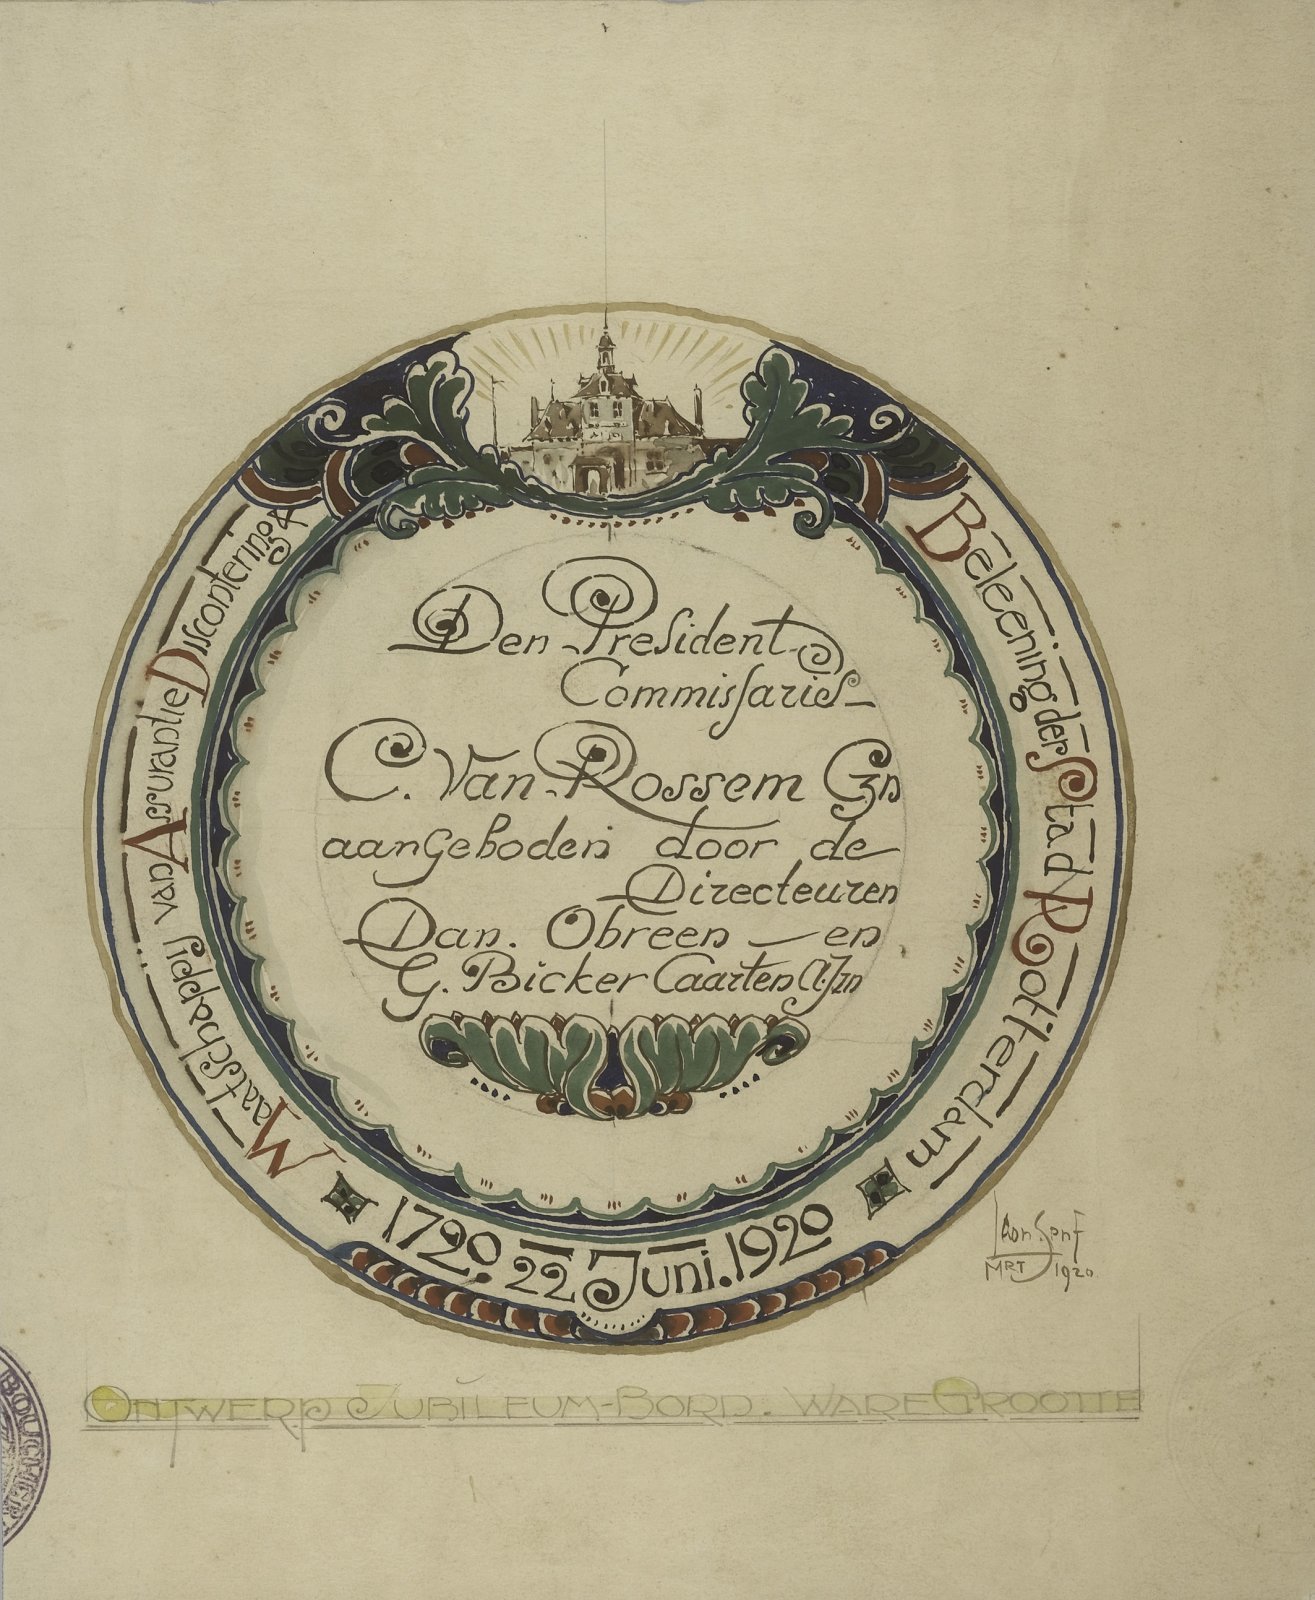 Maatschappij van Assurantie Discontering &
Beleening der Stad Rotterdam
Den President
Commissaris
C. Van Rossem Czn
aangeboden door de
Directeuren
Dan. Obreen en
G. Bicker Caarten A.Jzn
1720. 22 Juni. 1920
Leon Senf
MRT 1920
ONTWERP JUBILEUM-BORD. WARE GROOTTE